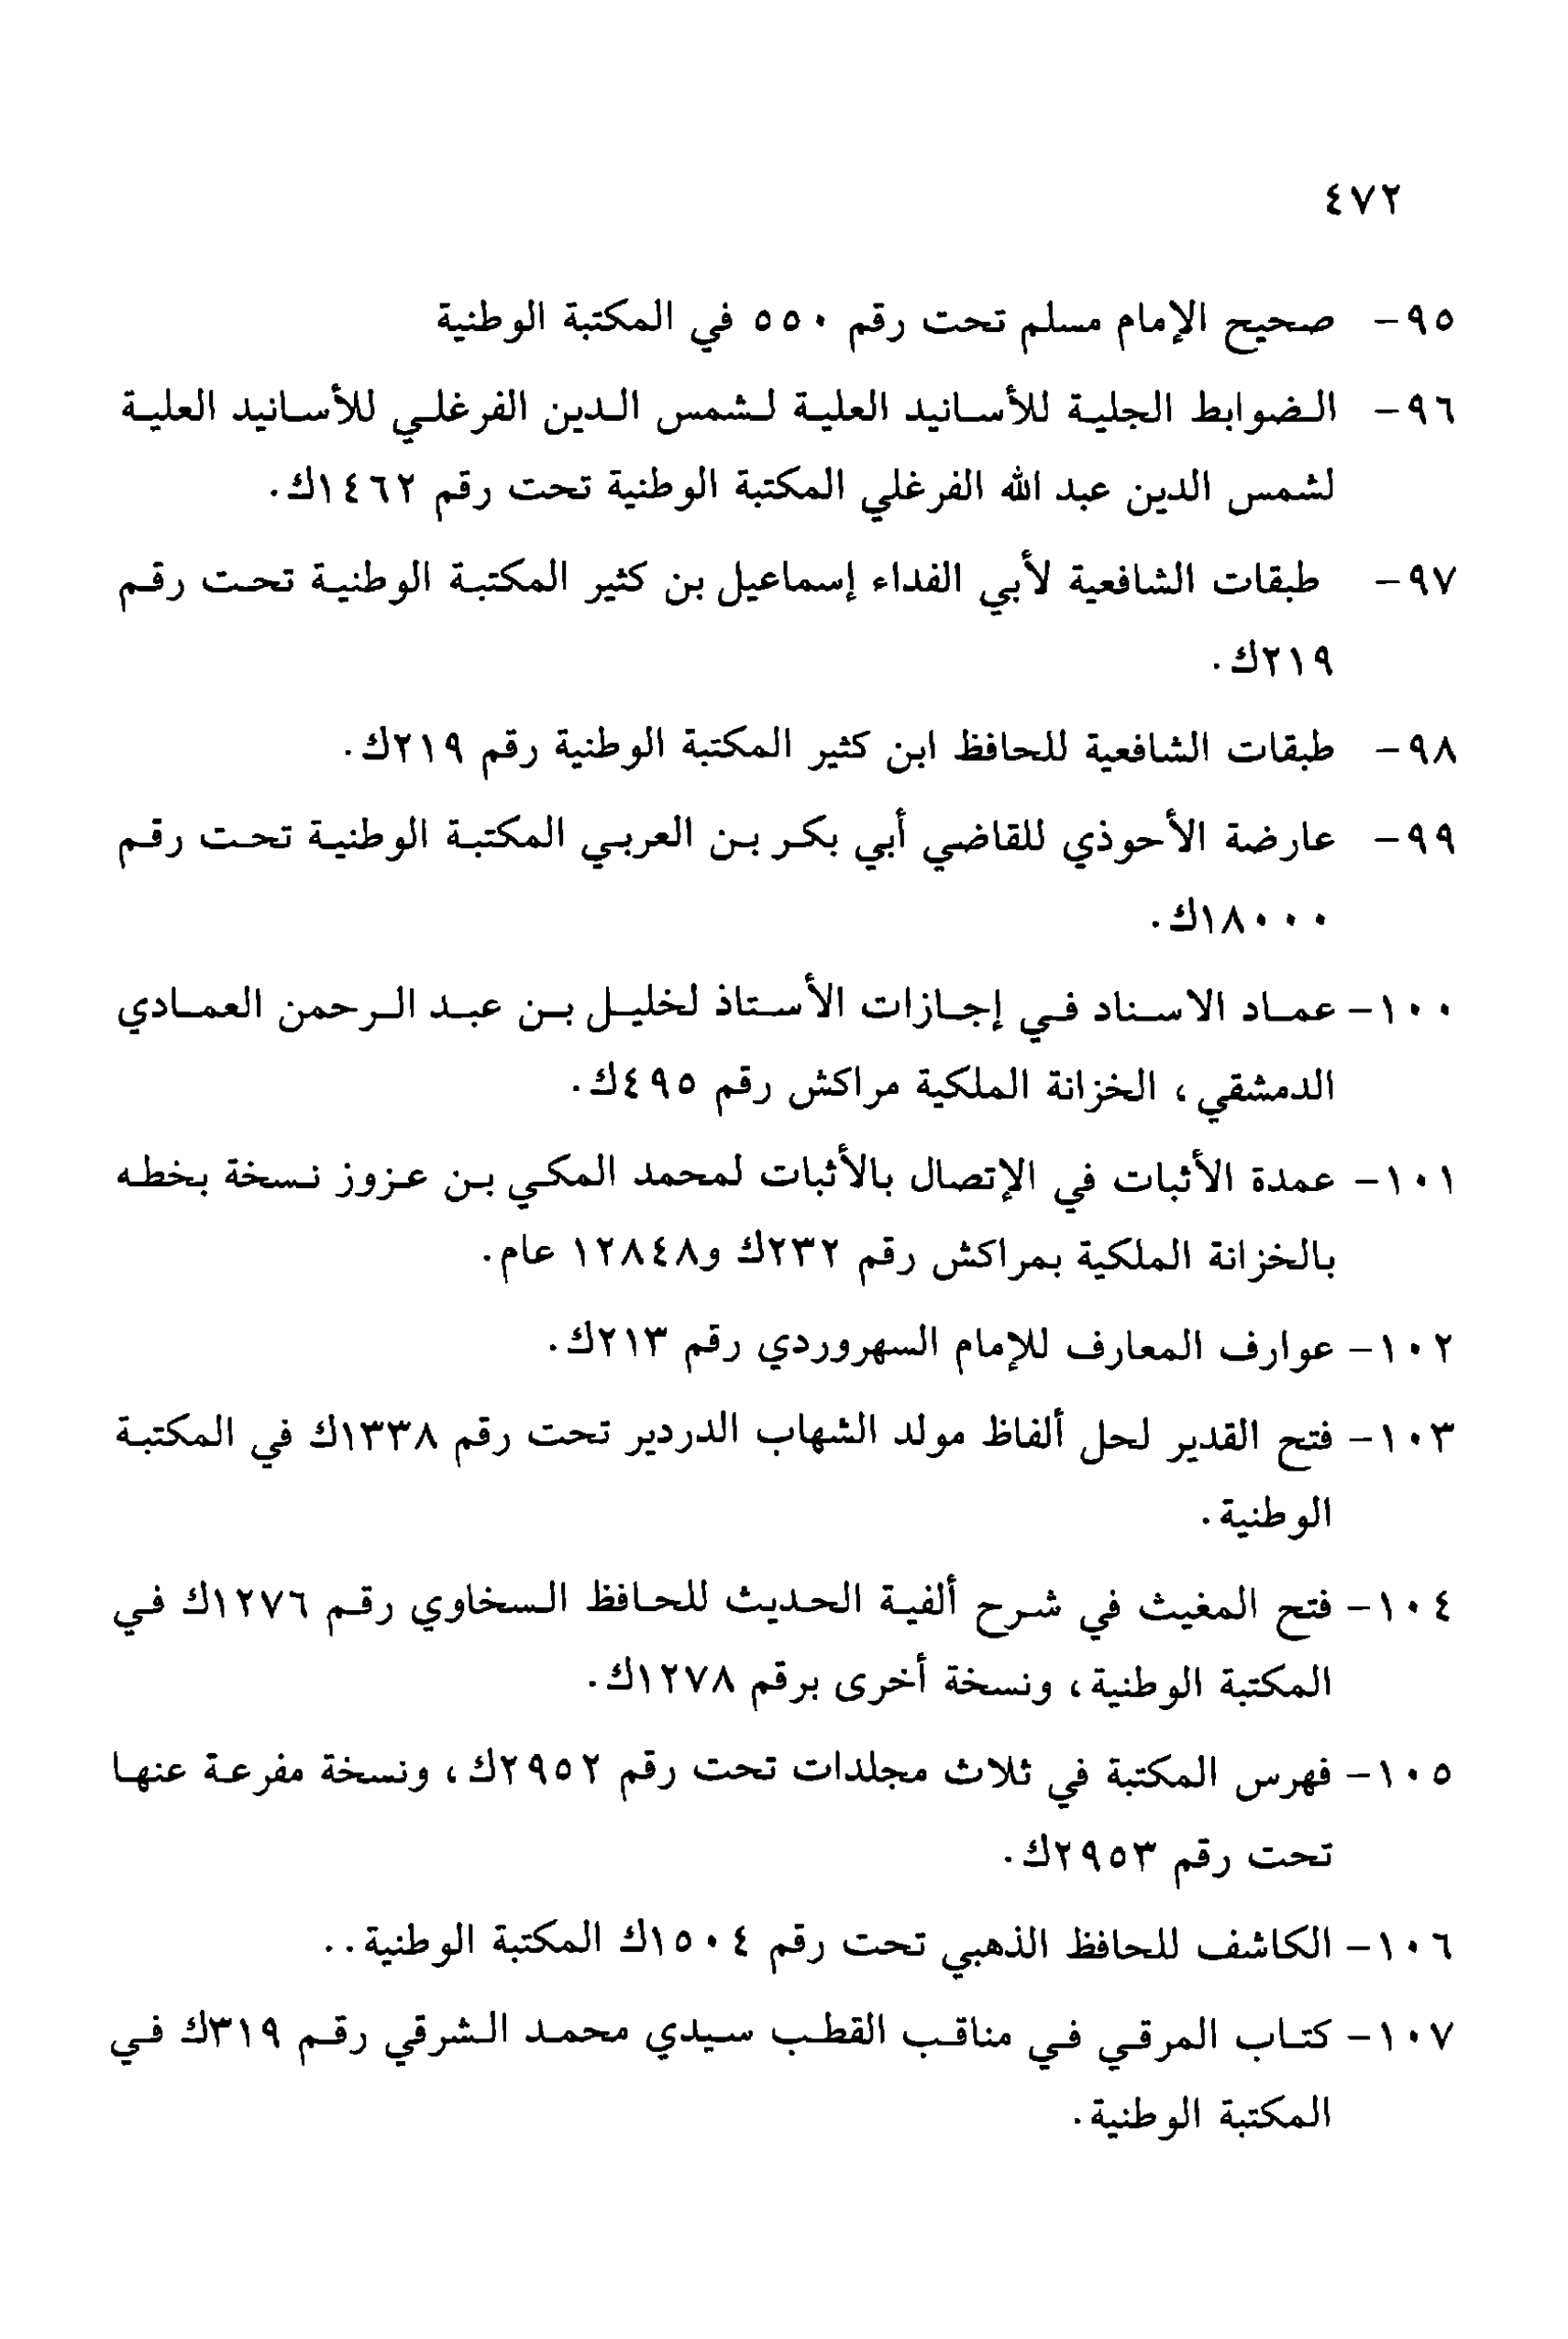 ٤٧٢
٩٥- صحيح الإمام مسلم تحت رقم ٥٥٠ في المكتبة الوطنية
٩٦- الضوابط الجلية للأسانيد العلية لشمس الدين الفرغلي للأسانيد العلية
لشمس الدين عبد الله الفرغلي المكتبة الوطنية تحت رقم ١٤٦٢ك.
٩٧- طبقات الشافعية لأبي الفداء إسماعيل بن كثير المكتبة الوطنية تحت رقم
٢١٩ك.
٩٨- طبقات الشافعية للحافظ ابن كثير المكتبة الوطنية رقم ٢١٩ك.
٩٩- عارضة الأحوذي للقاضي أبي بكر بن العربي المكتبة الوطنية تحت رقم
١٨٠٠٠ك.
١٠٠- عماد الاسناد في إجازات الأستاذ لخليل بن عبد الرحمن العمادي
الدمشقي، الخزانة الملكية مراكش رقم ٤٩٥ك.
١٠١- عمدة الأثبات في الإتصال بالأثبات لمحمد المكي بن عزوز نسخة بخطه
بالخزانة الملكية بمراكش رقم ٢٣٢ك و١٢٨٤٨ عام.
١٠٢- عوارف المعارف للإمام السهروردي رقم ٢١٣ك.
١٠٣- فتح القدير لحل ألفاظ مولد الشهاب الدردير تحت رقم ١٣٣٨ك في المكتبة
الوطنية.
١٠٤- فتح المغيث في شرح ألفية الحديث للحافظ السخاوي رقم ١٢٧٦ك في
المكتبة الوطنية، ونسخة أخرى برقم ١٢٧٨ك.
١٠٥- فهرس المكتبة في ثلاث مجلدات تحت رقم ٢٩٥٢ك، ونسخة مفرعة عنها
تحت رقم ٢٩٥٣ك.
١٠٦- الكاشف للحافظ الذهبي تحت رقم ١٥٠٤ك المكتبة الوطنية..
١٠٧- كتاب المرقي في مناقب القطب سيدي محمد الشرقي رقم ٣١٩ك في
المكتبة الوطنية.